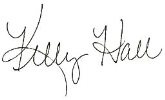 Kelly Hall